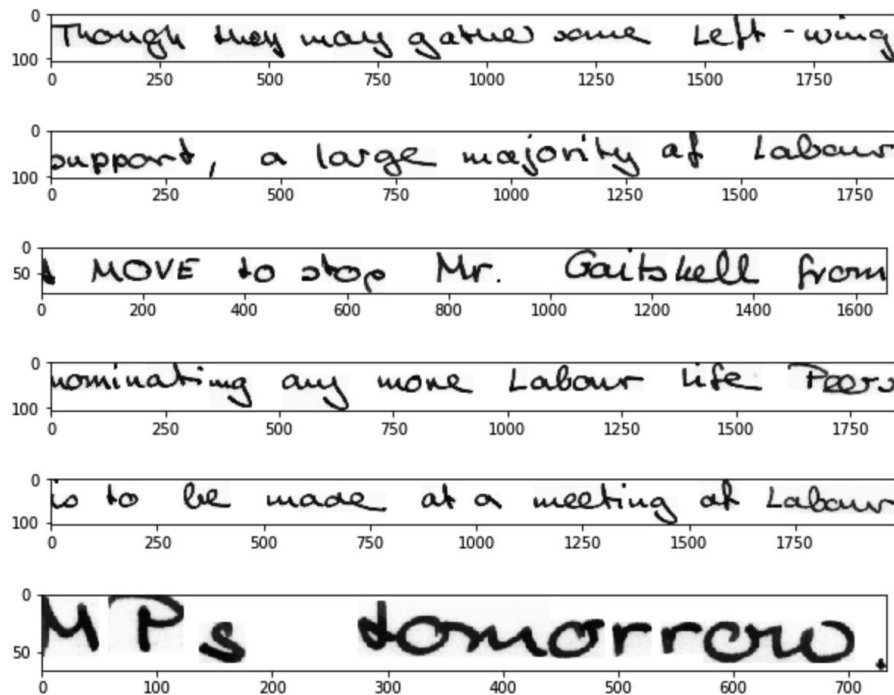 0 Though they may gather some Left - wing
100
0 250 500 750 1000 1250 1500 1750
0 support, a large majority of Labour
100
0 250 500 750 1000 1250 1500 1750
0
50 A MOVE to stop Mr. Gaitskell from
0 200 400 600 800 1000 1200 1400 1600
0 nominating any more Labour Life Peers
100
0 250 500 750 1000 1250 1500 1750
0 is to be made at a meeting of Labour
100
0 250 500 750 1000 1250 1500 1750
0 MPs tomorrow.
50
0 100 200 300 400 500 600 700